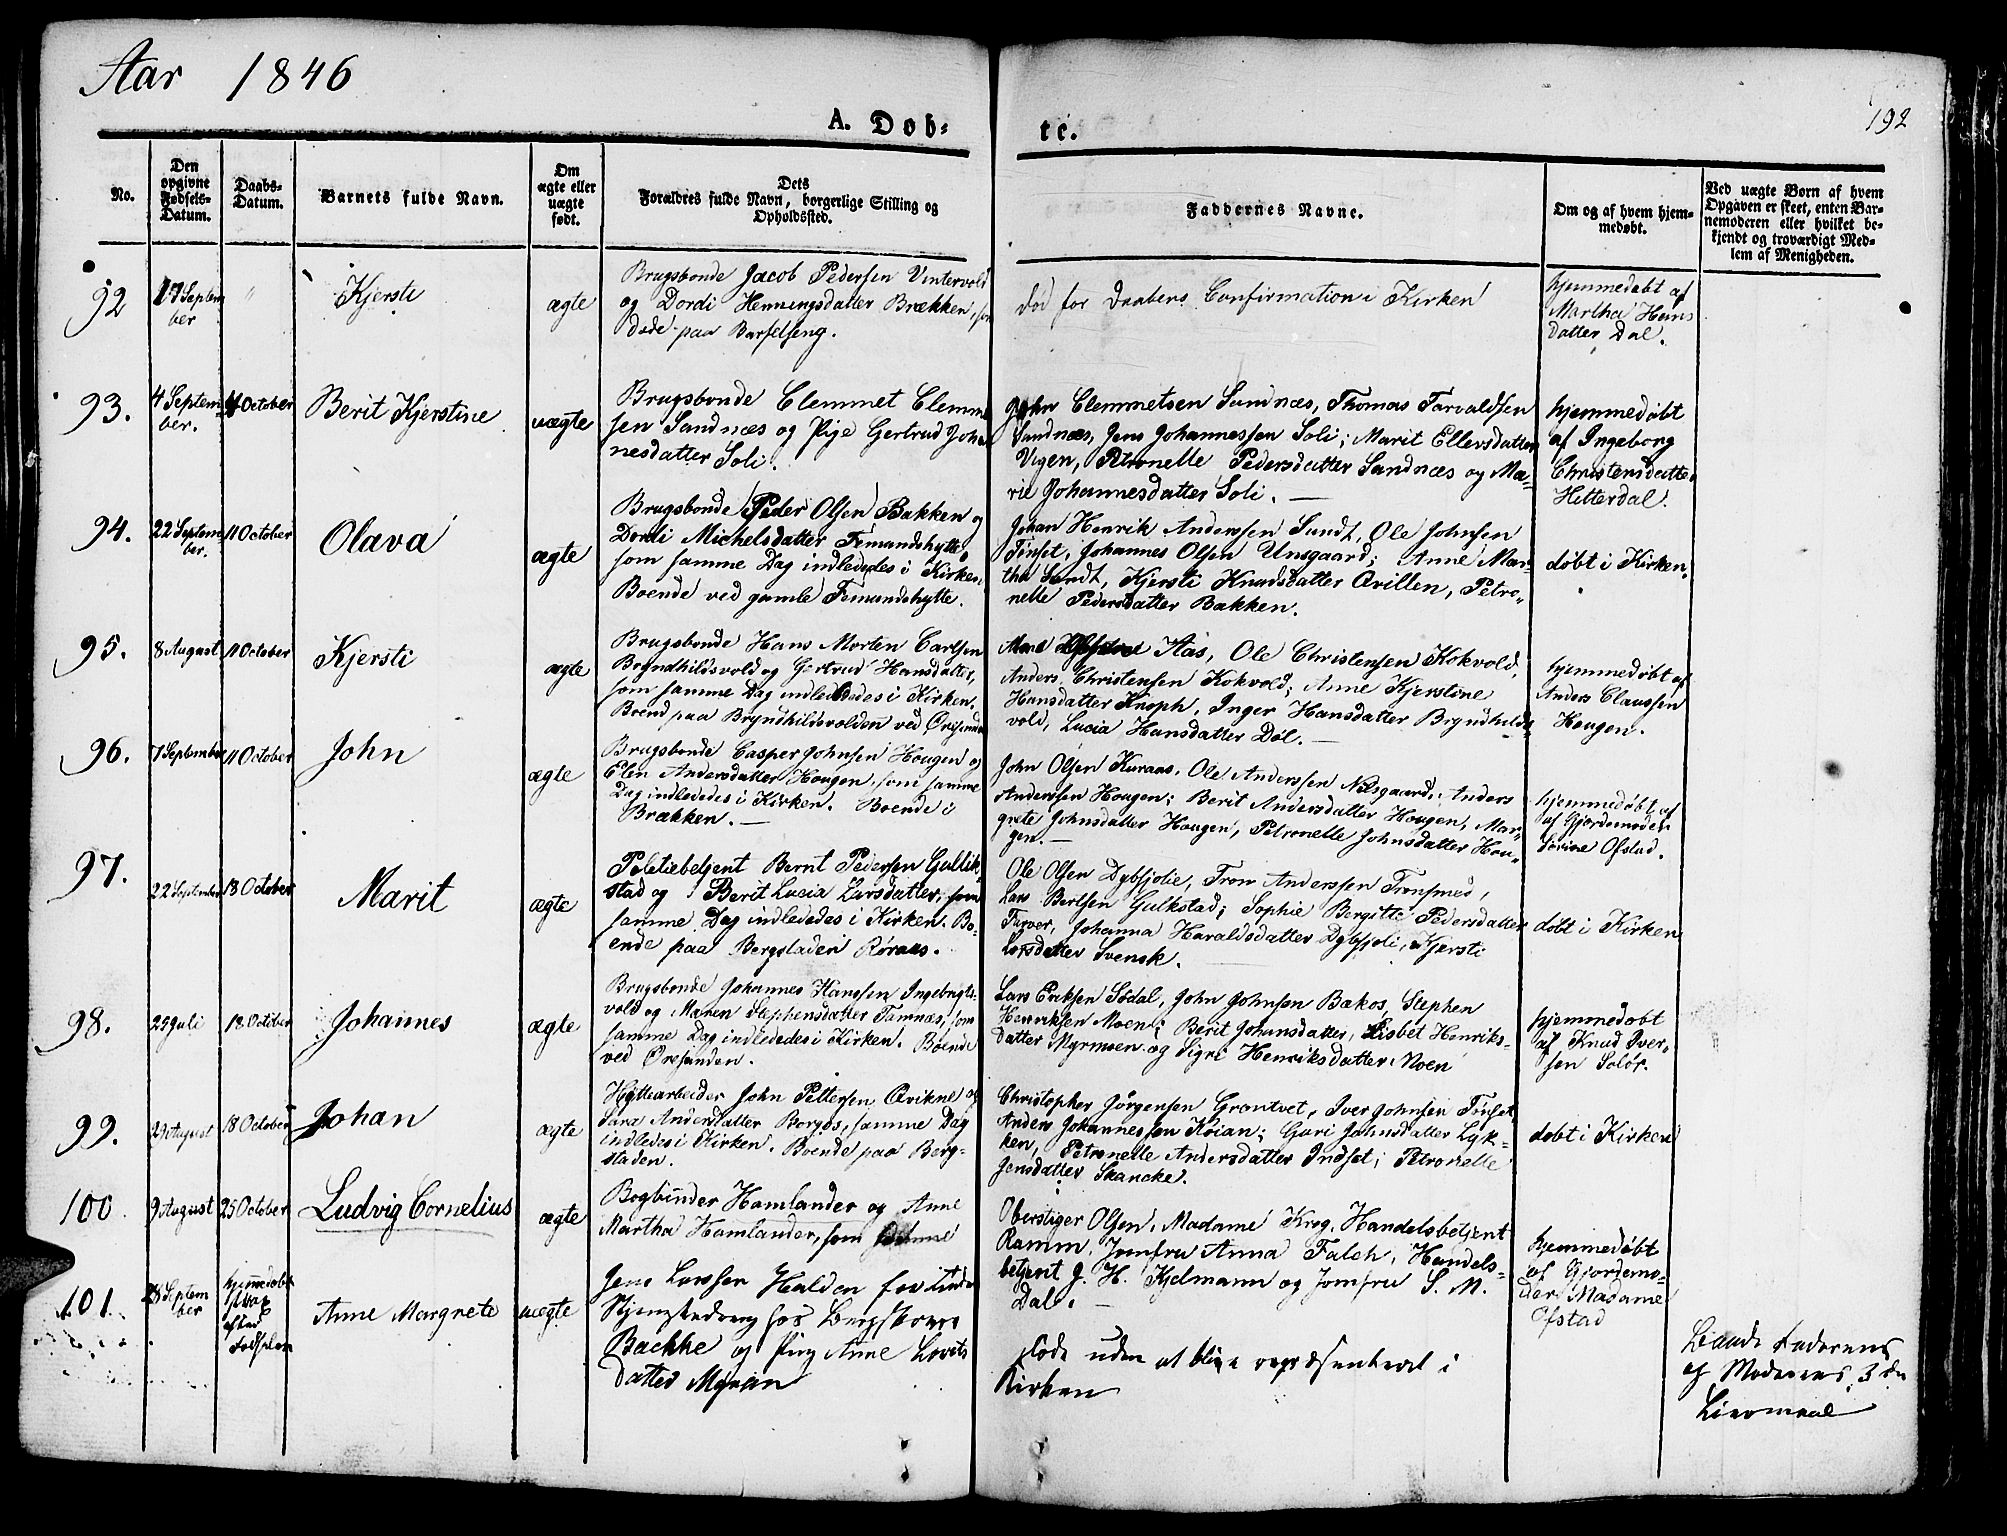 Aar 1846
192
A. Dob-
te.
No.
Den opgivne Fødsels-Datum.
Daabs-Datum.
Barnets fulde Navn.
Om ægte eller uægte født.
Dets Forældres fulde Navn, borgerlige Stilling og Opholdssted.
Faddernes Navne.
Om og af hvem hjem-
medøbt.
Ved uægte Børn af hvem
Opgaven er skeet, enten Bar-
nemoderen eller hvilket be-
kjendt og troværdigt Med-
lem af Menigheden.
92
17 Septem
ber
"
Kjersti
ægte
Brugsbonde Jacob Pedersen Vintervold
og Dordi Henningsdatter Brækken, som
døde paa Barselseng.
død før Daabens Confirmation i Kirken
hjemmedøbt af
Martha Hans
datter Dal.
93.
4 Septem-
ber.
11 October
Berit Kjerstine
uægte
Brugsbonde Clemmet Clemmet
sen Sandnæs og Pige Gertrud Johan
nesdatter Soli.
John Clemmetsen Sandnæs, Thomas Tarvaldsen
Sandnæs, Jens Johannessen Soli; Marit Ellevsdatter
Vigen, Petronelle Pedersdatter Sandnæs og Ma-
rie Johannesdatter Soli. —
hjemmedøbt
af Ingeborg
Christensdatter
Hitterdal.
94.
22 Septem
ber.
11 October
Olava
ægte
Brugsbonde Peder Olsen Bakken og
Dordi Michelsdatter Femundshytte,
som samme Dag indlededes i Kirken.
Boende ved gamle Femundshytte.
Johan Henrik Anderssen Sundt, Ole Johnsen
Tinset, Johannes Olsen Unsgaard; Anne Mar-
tha Sundt, Kjersti Knudsdatter Qvillen, Petro-
nelle Pedersdatter Bakken.
døbt i Kirken.
95.
8 August
11 October
Kjersti
ægte
Brugsbonde Hans Morten Carlsen
Bryndhilsvold og Gjertrud Hansdatter,
som samme Dag indlededes i Kirken.
Boend paa Bryndhilsvolden ved Øresunde
Aas, Ole Christensen Kokvold,
Anders Christensen Kokvold; Anne Kjerstine
Hansdatter Knoph, Inger Hansdatter Bryndhilds
vold, Lucia Hansdatter Døl. —
hjemmedøbt af
Anders Claussen
Hougen.
96.
7 September
11 October
John
ægte
Brugsbonde Casper Johnsen Hougen og
Elen Andersdatter Hougen, som samme
Dag indlededes i Kirken. Boende i
Brækken. —
John Olsen Kuraas, Ole Anderssen Nilsgaard, Anders
Anderssen Hougen; Berit Andersdatter Hougen, Mar-
grete Johnsdatter Hougen, Petronelle Johnsdatter Hou-
gen. —
hjemmedøbt af
af Gjordemoder
Sevine Ofstad.
97.
22 September
18 October
Marit
ægte
Poletiebetjent Bernt Pedersen Gullik-
stad og Berit Lucia Larsdatter, som
samme Dag indlededes i Kirken. Bo-
ende paa Bergstaden Røraas.
Ole Olsen Dybsjolie, Tron Anderssen Tronsmed,
Lars Bertsen Gulkstad; Sophie Bergitte Pedersdatter
Farver, Johanna Haraldsdatter Dybsjoli, Kjersti
Larsdatter Svensk.
døbt i Kirken
98.
25 Juli
18 October
Johannes
ægte
Brugsbonde Johannes Hanssen Ingebrigts-
vold og Maren Stephensdatter Tamnæs, som
samme Dag indlededes i Kirken. Boende
ved Øresunden.
Lars Eriksen Sødal, John Johnsen Bakos, Stephen
Henriksen Moen; Berit Johansdatter, Lisbet Henriks-
datter Myrmoen og Sigri Henriksdatter Moen
hjemmedøbt
af Knud Iver-
sen Solør.
99.
29 August
18 October
Johan
ægte
Hyttearbeider John Pettersen Qvikne og
Sara Andersdatter Borgos, samme Dag
indledes i Kirken. Boende paa Berg-
staden.
Christopher Jörgensen Grantvet, Iver Johnsen Tinset,
Anders Johannessen Kojan; Guri Johnsdatter Lyk-
ken, Petronelle Andersdatter Indset; Petronelle
Jensdatter Skancke.
døbt i Kirken
100
9 August
25 October
Ludvig Cornelius
ægte
Bogbinder Hamlander og Anne
Martha Hamlander, som samme
Oberstiger Olsen, Madame Krog, Handelsbetjent
Ramm, Jomfru Anna Falch, Handels-
betjent J. H. Kjelmann og Jomfru S. M.
Dal. —
hjemmedøbt
af Gjordemo-
der Madame
Ofstad
101.
28 Septem
ber
hjemmedøbt
strax
efter
Fødslen
Anne Margrete
uægte
Jens Larssen Halden for Tiden
hos Bergskriver
Backke og Pige Anne Lovits
datter Myran
døde uden at blive repræsenteret i
Kirken
Baade Faderens
og Moderens 3 die
Leiermaal